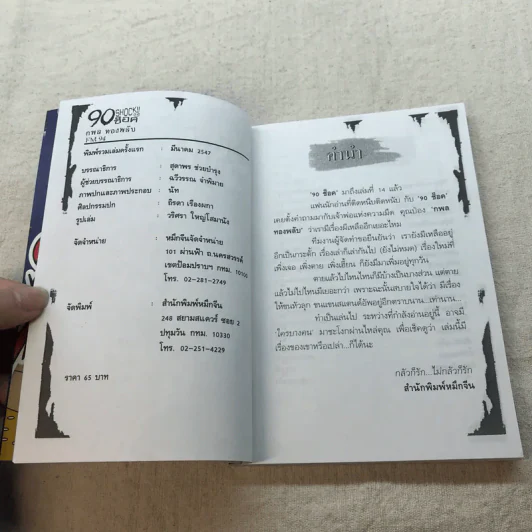 90 SHOCK!!
ช็อค
กพล ทองพลับ
FM.94
พิมพ์รวมเล่มครั้งแรก : มีนาคม 2547
บรรณาธิการ : สุดาพร ช่วยบำรุง
ผู้ช่วยบรรณาธิการ : ฉวีวรรณ จำพิมาย
ภาพปกและภาพประกอบ : นัท
ศิลปกรรมปก : ธิรดา เรืองผกา
รูปเล่ม : วริศรา ใหญ่โสมานัง
จัดจำหน่าย : หมึกจีนจัดจำหน่าย
101 ผ่านฟ้า ถ.นครสวรรค์
เขตป้อมปราบฯ กทม. 10100
โทร. 02-281-2749
จัดพิมพ์ : สำนักพิมพ์หมึกจีน
248 สยามสแควร์ ซอย 2
ปทุมวัน กทม. 10330
โทร. 02-251-4229
ราคา 65 บาท
คำนำ
'90 ช็อค' มาถึงเล่มที่ 14 แล้ว
แฟนนักอ่านที่ติดหนึบติดหนับ กับ '90 ช็อค'
เคยตั้งคำถามมากับเจ้าพ่อแห่งความมืด คุณป๋อง 'กพล
ทองพลับ' ว่าเรามีเรื่องผีเหลืออีกเยอะไหม
ทีมงานผู้จัดทำขอยืนยันว่า เรายังมีเหลืออยู่
อีกเป็นภาระตั้ก เรื่องเล่ากันเล่ากันไป (ยังไม่หมด) เรื่องใหม่ที่
เพิ่งเจอ เพิ่งตาย เพิ่งเฮี้ยน ก็ยังมีมาเพิ่มอยู่ทุกวัน
ตายแล้วไปไหนใครก็มีบ้างเป็นบางส่วน แต่ตาย
แล้วไม่ไปไหนมีเยอะกว่า เพราะฉะนั้นสบายใจได้ว่า มีเรื่อง
ให้ขนหัวลุก ขนแขนสแตนด์อัพอยู่อีกตราบนาน...เท่านาน...
ทำเป็นเล่นไป ระหว่างที่กำลังอ่านอยู่นี้ อาจมี
'ใครบางคน' มาชะโงกผ่านไหล่คุณ เพื่อเช็คดูว่า เล่มนี้มี
เรื่องของเขาหรือเปล่า...ก็ได้นะ
กลัวก็รัก...ไม่กลัวก็รัก
สำนักพิมพ์หมึกจีน